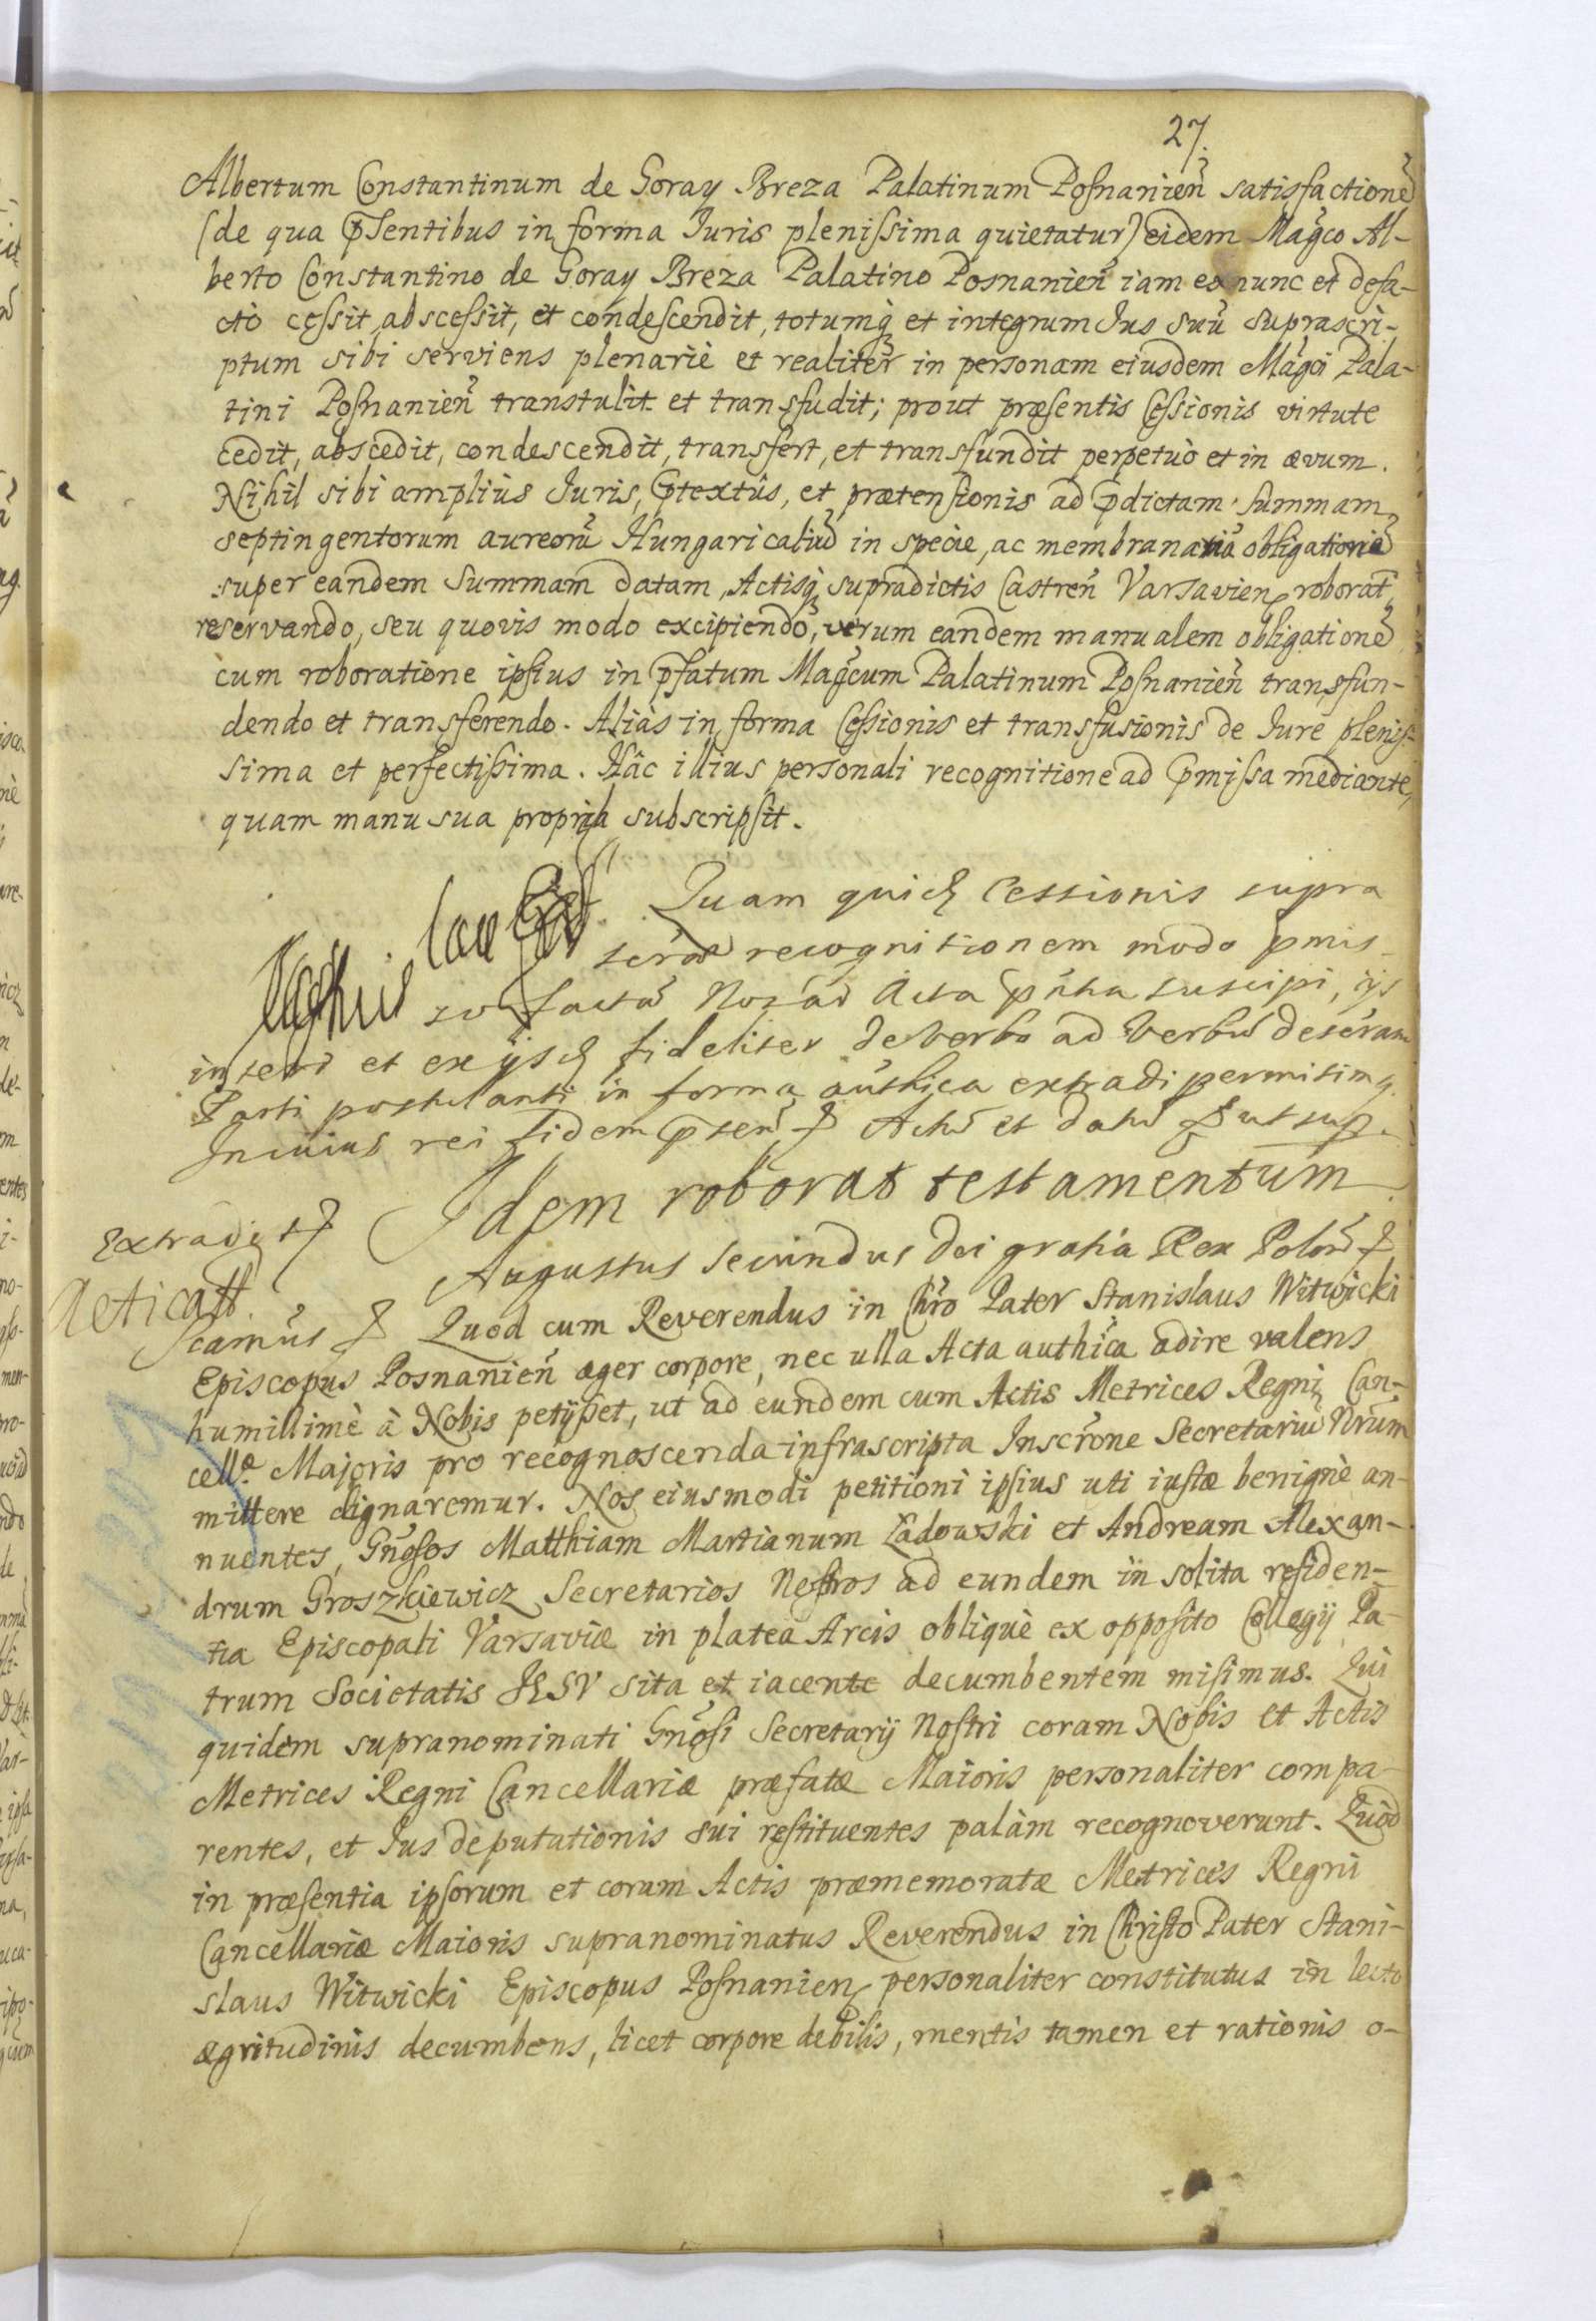 27.
Albertum Constantinum de Goray Breza Palatinum Posnanień satisfactionē
(de qua p̄sentibus in forma Iuris plenissima quietatur) eidem Mag̃co Al-
berto Constantino de Goray Breza Palatino Posnanień iam ex nunc et defa-
cto cessit, abscessit, et condescendit, totumq; et integrum Ius suū suprascri-
ptum sibi serviens plenariè et realiter in personam eiusdem Mag̃ci Pala-
tini Posnanień transtulit et transfudit; prout præsentis Cessionis virtute
cedit, abscedit, condescendit, transfert, et transfundit perpetuò et in ævum.
Nihil sibi amplius Iuris, p̄textûs, et prætensionis ad p̄dictam summam
septingentorum aureorū Hungaricaliū in specie, ac membranariā obligationē
super eandem summam datam, Actisq; supradictis Castreń Varsavień roborat̄
reservando, seu quovis modo excipiendo, verum eandem manualem obligationē
cum roboratione ipsius in p̄fatum Mag̃cum Palatinum Posnanień transfun-
dendo et transferendo. Aliàs in forma Cessionis et transfusionis de Iure plenis-
sima et perfectissima. Hâc illius personali recognitione ad p̄missa mediante,
quam manu sua propria subscripsit.
Quam quidē Cessionis supra
scr̃æ recognitionem modo p̄mis-
so factā Nos ad Acta p̄ñtia suscipi, ijs
inseri et ex ijsdē fideliter de verbo ad verbū descr̃am
Parti postulanti in forma auth̃ica extradi permisimq.
In cuius rei fidem p̄sen̄ &. Actū et datū & ut sup.
Idem roborat testamentum
Extradit &
Augustus Secundus Dei gratia Rex Polon̄ &
Acticat̄.
Scamus & Quod cum Reverendus in Chr̃o Pater Stanislaus Witwicki
Episcopus Posnanień æger corpore, nec ulla Acta auth̃ica adire valens
humillimè à Nobis petijsset, ut ad eundem cum Actis Metrices Regni Can-
cellæ Majoris pro recognoscenda infrascripta Inscr̃one Secretariū Nr̃um
mittere dignaremur. Nos eiusmodi petitioni ipsius uti iustæ benignè an-
nuentes, Gñosos Matthiam Martianum Ładowski et Andream Alexan-
drum Groszkiewicz Secretarios Nostros ad eundem in solita residen-
tia Episcopali Varsaviæ in platea Arcis obliquè ex opposito Collegij Pa-
trum Societatis JESV sita et iacente decumbentem misimus. Qui
quidem supranominati Gñosi Secretarij Nostri coram Nobis et Actis
Metrices Regni Cancellariæ præfatæ Maioris personaliter compa-
rentes, et Ius deputationis sui restituentes palàm recognoverunt. Quòd
in præsentia ipsorum et coram Actis præmemoratæ Metrices Regni
Cancellariæ Maioris supranominatus Reverendus in Christo Pater Stani-
slaus Witwicki Episcopus Posnanień personaliter constitutus in lecto
ægritudinis decumbens, licet corpore debilis, mentis tamen et rationis o-